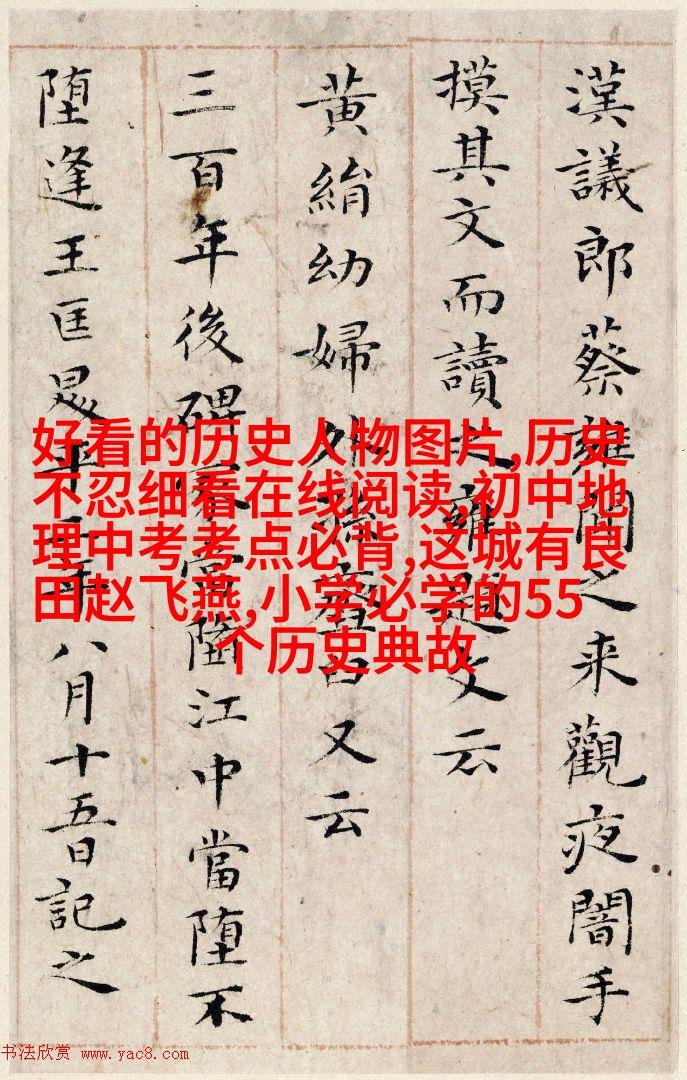 漢議郎蔡雍聞之来觀夜闇手
摸其文而讀之雍題文云
黄絹幼婦外孫齏臼又云
三百年後碑冢當墮江中當墮不
墮逢王匡昇平二年八月十五日記之
好看的历史人物图片,历史
不忍细看在线阅读,初中地
理中考考点必背,这城有良
田赵飞燕,小学必学的55
个历史典故
书法欣赏 www.yac8.com